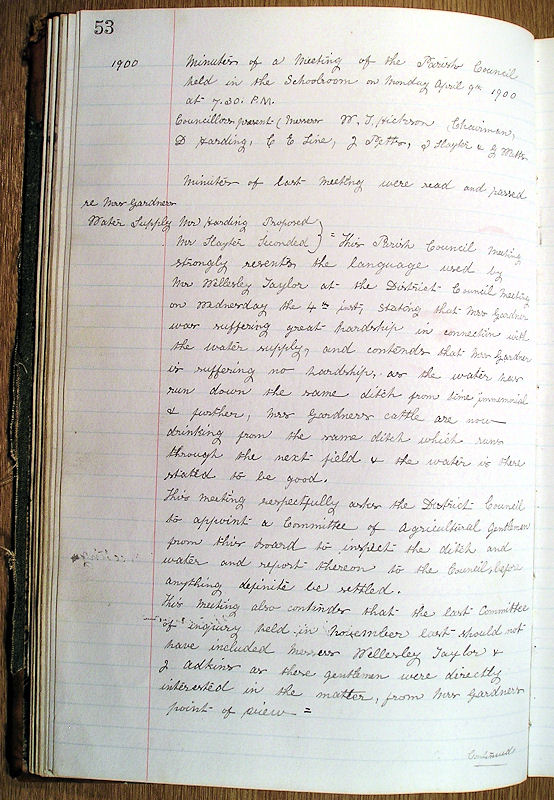 53
1900 Minutes of a Meeting of the Parish Council
held in the Schoolroom on Monday April 9th 1900
at 7.30. P.M.
Councillors present (Messrs W. T. Hickson (Chairman,
D Harding, C E Line, J Petts, J Slayter & G Watts
Minutes of last meeting were read and passed
re Mrs Gardners
Water Supply Mr Harding Proposed
Mr Slayter Seconded } = This Parish Council Meeting
strongly resents the language used by
Mr Wellesley Taylor at the District Council Meeting
on Wednesday the 4th inst, stating that Mrs Gardner
was suffering great hardship in connection with
the water supply, and contends that Mrs Gardner
is suffering no hardship, as the water has
run down the same ditch from time immemorial
& further, Mrs Gardners cattle are now
drinking from the same ditch which runs
through the next field & the water is there
stated to be good.
This meeting respectfully asks the District Council
to appoint a Committee of Agricultural Gentlemen
from this board to inspect the ditch and
water and report thereon to the Council, before
anything definite be settled.
This meeting also contends that the last Committee
of inquiry held in November last should not
have included Messrs Wellesley Taylor &
J Adkins as these gentlemen were directly
interested in the matter, from Mrs Gardners
point of view =
Continued